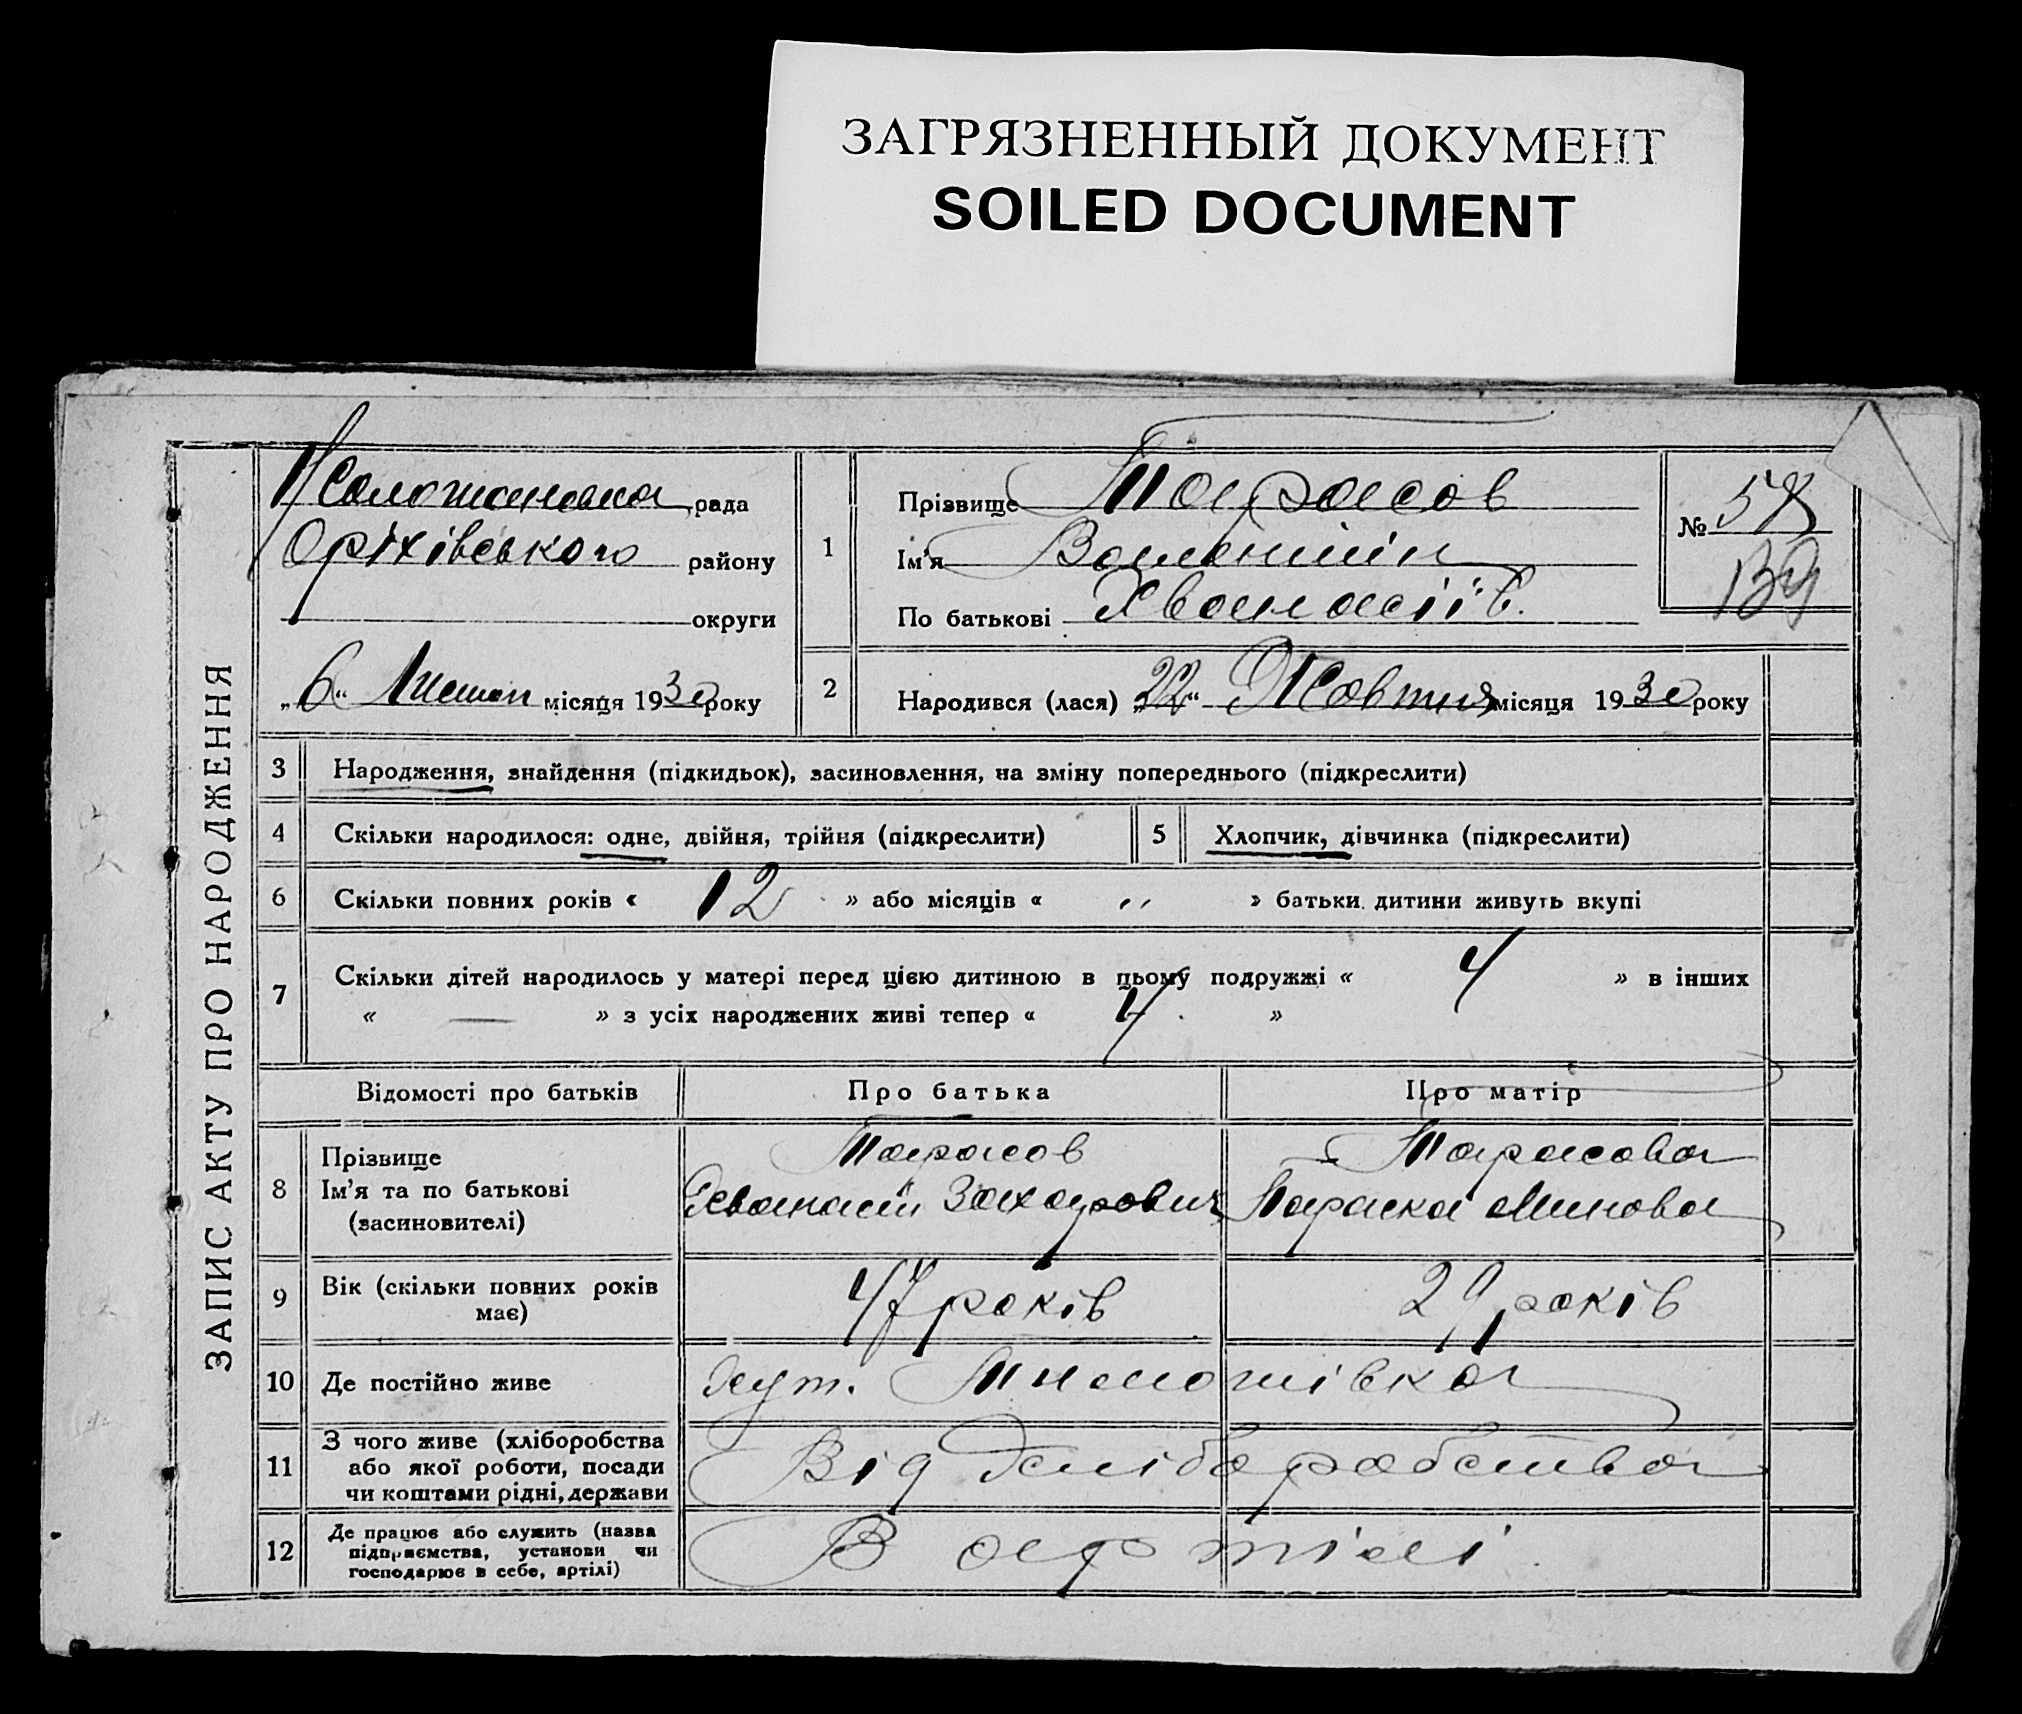 ЗАГРЯЗНЕННЫЙ ДОКУМЕНТ
SOILED DOCUMENT
ЗАПИС АКТУ ПРО НАРОДЖЕННЯ
рада
Оріхівського району
округи
„6“ Листоп місяця 1930 року
1
Прізвище Тарасов
Ім'я Валентін
По батькові Хванасіїв.
№ 58
2
Народився (лася) „22“ Жовтня місяця 1930 року
3 Народження, знайдення (підкидьок), засиновлення, на зміну попереднього (підкреслити)
4 Скільки народилося: одне, двійня, трійня (підкреслити) 5 Хлопчик, дівчинка (підкреслити)
6 Скільки повних років « 12 » або місяців « ,, » батьки дитини живуть вкупі
7 Скільки дітей народилось у матері перед цією дитиною в цьому подружжі « 4 » в інших
« — » з усіх народжених живі тепер « 4 »
Відомості про батьків Про батька Про матір
8 Прізвище
Ім'я та по батькові
(засиновителі)
Тарасов
Хванасій Захарович
Тарасова
Параска Минова
9 Вік (скільки повних років має) 47 років 29 років
10 Де постійно живе хут. Тимошівка
11 З чого живе (хліборобства
або якої роботи, посади
чи коштами рідні, держави
Від хліборобства
12 Де працює або служить (назва
підприємства, установи чи
господарює в себе, артілі)
В артілі